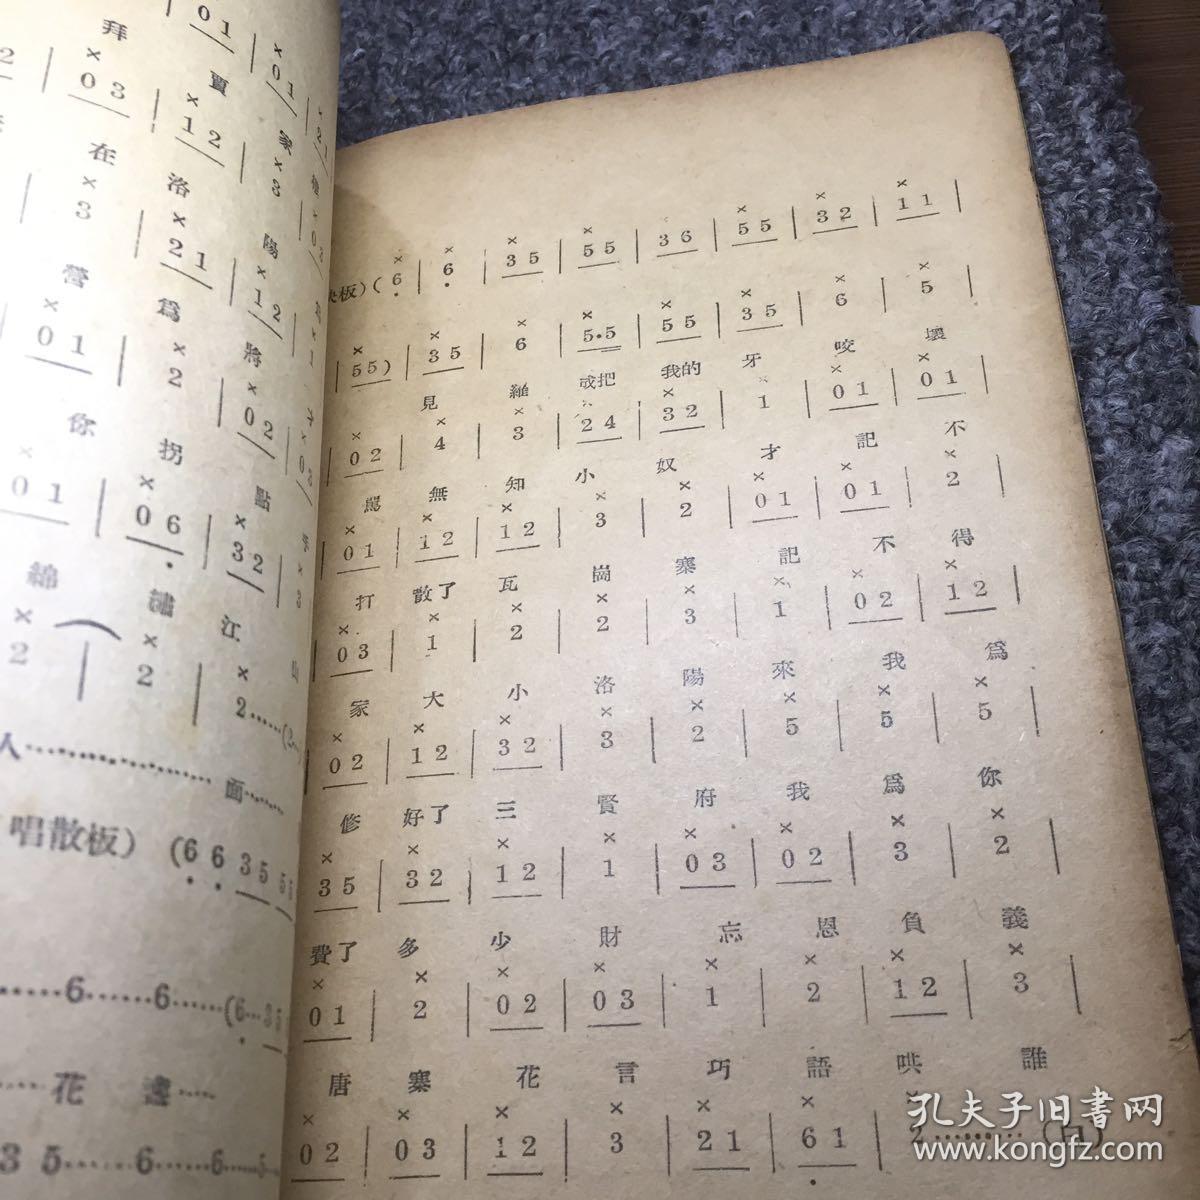 拜 賈 家
01 01
03 12 3
在 洛 陽
3 21 12
營 爲 將
01 2 02
你 拐 點
01 06 32
綿 繡 江 山
2 ( 2 2……(2
人………………面……
唱散板) (6 6 35 5
……6……6……(6…35
……花 ……
35……6……6……5
板) ( 6 | 6 | 35 | 55 | 36 | 55 | 32 | 11 |
55) | 35 | 6 | 5.5 | 55 | 35 | 6 | 5
見 羅 成把 我的 牙 咬 壞
02 | 4 | 3 | 24 | 32 | 1 | 01 | 01 |
罵 無 知 小 奴 才 記 不
01 | 12 | 12 | 3 | 2 | 01 | 01 | 2 |
打 散了 瓦 崗 寨 記 不 得
03 | 1 | 2 | 2 | 3 | 1 | 02 | 12 |
家 大 小 洛 陽 來 我 爲
02 | 12 | 32 | 3 | 2 | 5 | 5 | 5 |
修 好了 三 賢 府 我 爲 你
35 | 32 | 12 | 1 | 03 | 02 | 3 | 2 |
費了 多 少 財 忘 恩 負 義
01 | 2 | 02 | 03 | 1 | 2 | 12 | 3 |
唐 寨 花 言 巧 語 哄 誰
02 | 03 | 12 | 3 | 21 | 61 | 2………
孔夫子旧书网
www.kongfz.com